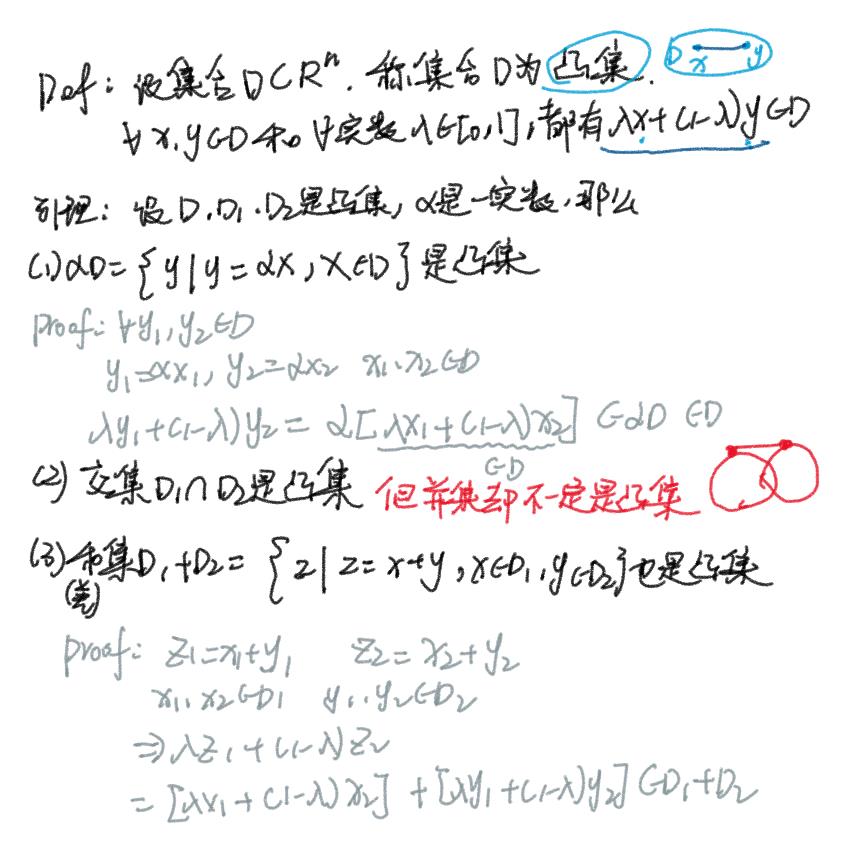 Def：设集合D⊂Rⁿ. 称集合D为凸集. D x y
∀x,y∈D和∀实数λ∈[0,1],都有λx+(1-λ)y∈D
引理：设D.D₁.D₂是凸集,α是一实数,那么
(1)αD={y|y=αx,x∈D}是凸集
proof: ∀y₁,y₂∈D
y₁=αx₁, y₂=αx₂ x₁.x₂∈D
λy₁+(1-λ)y₂=α[λx₁+(1-λ)x₂]∈αD ∈D
∈D
(2) 交集D₁∩D₂是凸集 但并集却不一定是凸集
(3)和集D₁+D₂={z|z=x+y,x∈D₁,y∈D₂}也是凸集
(差)
proof: z₁=x₁+y₁ z₂=x₂+y₂
x₁,x₂∈D₁ y₁.y₂∈D₂
⇒λz₁+(1-λ)z₂
=[λx₁+(1-λ)x₂]+[λy₁+(1-λ)y₂]∈D₁+D₂